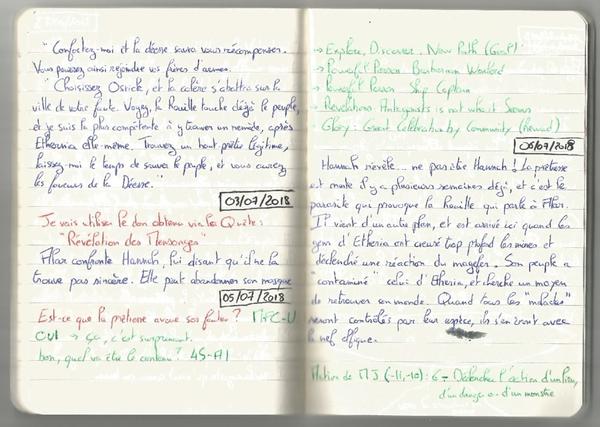 "Confortez-moi et la déesse saura vous récompenser.
Vous pouvez ainsi rejoindre vos frères d'armes.
"Choisissez Osrick, et la colère s'abattra sur la
ville de votre faute. Voyez, la Rouille touche déjà le peuple,
et je suis la plus compétente à y trouver un remède, après
Etheria elle-même. Trouvez un haut prêtre légitime,
laissez-moi le temps de sauver le peuple, et vous aurez
les faveurs de la Déesse."
03/07/2018
Je vais utiliser le don obtenu via la Quête:
"Révélation des Mensonges"
Altar confronte Hannah, lui disant qu'il ne la
trouve pas sincère. Elle peut abandonner son masque
05/07/2018
Est-ce que la prêtresse avoue ses fautes?
OUI → ça, c'est surprenant.
bon, quel va être le contenu?
→ Explore, Discover, New Path (Goal)
→ Powerful Person
→ Powerful Person Ship Captain
→ Revelation: Antagonists is not who it Seems
→ Glory: Great Celebration by Community (Reward)
06/07/2018
Hannah révèle... ne pas être Hannah! La prêtresse
est morte il y a plusieurs semaines déjà, et c'est le
parasite qui provoque la Rouille qui parle à Altar.
Il vient d'un autre plan, et est arrivé ici quand les
gens d'Etheria ont creusé trop profond les mines et
déclenché une réaction du Son peuple a
"contaminé" celui d'Etheria, et cherche un moyen
de retrouver son monde. Quand tous les malades"
seront contrôlés par leur espèce, ils s'en iront avec
la nef
Action de MJ (-11,-10): 6 - Déclencher l'action d'un lieu,
d'un danger ou d'un monstre